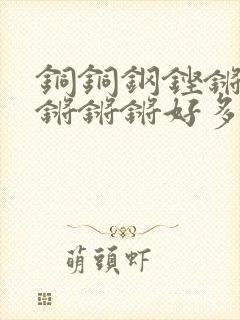 銅銅鋼鏗鏘
鏘鏘鏘好多
萌頭虾